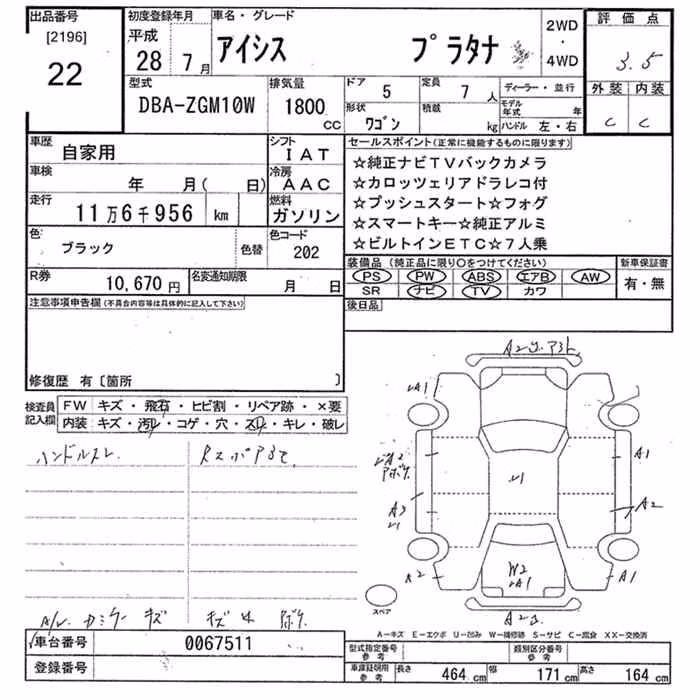 出品番号
[2196]
22
初度登録年月
平成
28 7月
車名・グレード
アイシス プラタナ
2WD
・
4WD
評価点
3.5
外装 内装
C C
型式
DBA-ZGM10W
排気量
1800
CC
ドア 5
定員 7人
形状 ワゴン
積載 kg
ディーラー・並行
モデル年式 年
ハンドル 左・右
車歴 自家用
シフト IAT
車検 年 月( 日)
冷房 AAC
走行 11万6千956 km
燃料 ガソリン
色 ブラック 色替
色コード 202
R券 10,670円
名変通知期限 月 日
セールスポイント(正常に機能するものに限ります)
☆純正ナビTVバックカメラ
☆カロッツェリアドラレコ付
☆プッシュスタート☆フォグ
☆スマートキー☆純正アルミ
☆ビルトインETC☆7人乗
装備品(純正品に限り○をつけてください)
PS PW ABS エアB AW
SR ナビ TV カワ
新車保証書
有・無
後日品
注意事項申告欄(不具合内容等は具体的に記入して下さい)
修復歴 有〔箇所 〕
検査員記入欄
FW キズ・飛石・ヒビ割・リペア跡・×要
内装 キズ・汚れ・コゲ・穴・スレ・キレ・破レ
ハンドルスレ
A/W カミラー キズ
A1
A1
A2
A3
U1
W2
A1
スペア
A-キズ E-エクボ U-凹み W-補修跡 S-サビ C-腐食 XX-交換済
車台番号 0067511
登録番号
型式指定番号 参考
類別区分番号 参考
車庫証明用 参考
長さ 464 cm
幅 171 cm
高さ 164 cm